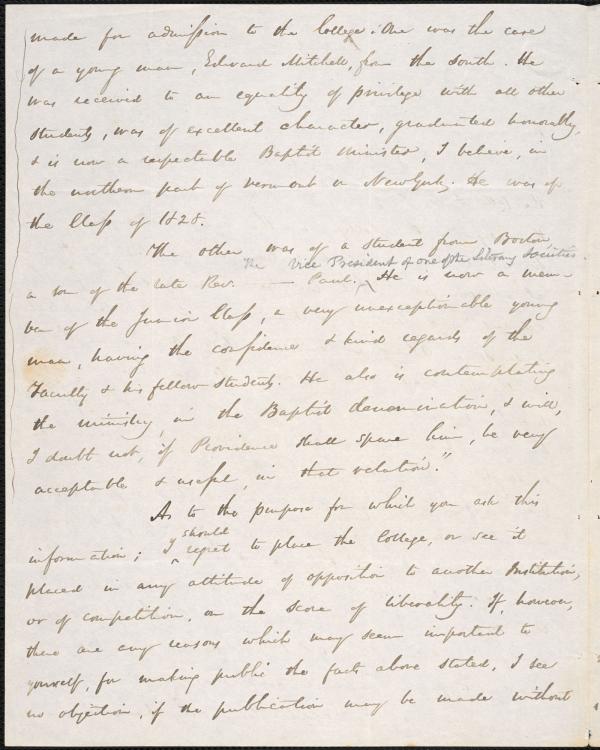 made for admission to the College. One was the case
of a young man, Edward Mitchell, from the South. He
was received to an equality of privilege with all other
students, was of excellent character, graduated honorably,
& is now a respectable Baptist Minister, I believe, in
the northern part of Vermont or New York. He was of
the Class of 1828.
The other was of a student from Boston
The Vice President of one of the Literary Societies.
a son of the late Rev. — Paul; He is now a mem-
ber of the Junior Class, a very unexceptionable young
man, having the confidence & kind regards of the
Faculty & his fellow students. He also is contemplating
the ministry, in the Baptist denomination, & will,
I doubt not, if Providence shall spare him, be very
acceptable & useful, in that relation."
As to the purpose for which you ask this
should
information; I regret to place the College, or see it
placed in any attitude of opposition to another Institution,
or of competition, on the score of liberality. If, however,
there are any reasons which may seem important to
yourself, for making public the facts above stated, I see
no objection, if the publication may be made without